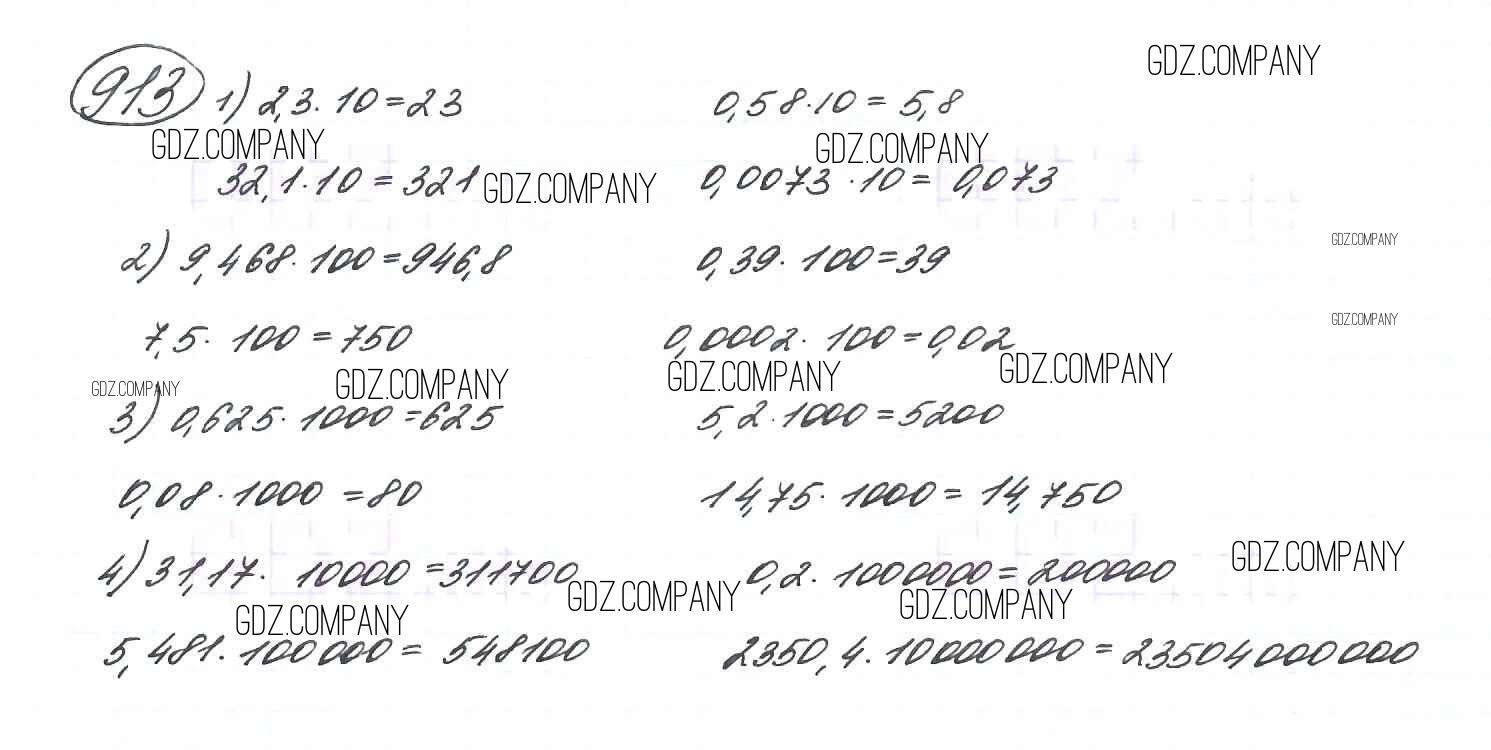 913 1) 2,3 · 10 = 23 0,58 · 10 = 5,8 GDZ.COMPANY
GDZ.COMPANY GDZ.COMPANY
32,1 · 10 = 321 GDZ.COMPANY 0,0073 · 10 = 0,073
2) 9,468 · 100 = 946,8 0,39 · 100 = 39 GDZ.COMPANY
7,5 · 100 = 750 0,0002 · 100 = 0,02 GDZ.COMPANY
GDZ.COMPANY GDZ.COMPANY GDZ.COMPANY GDZ.COMPANY
3) 0,625 · 1000 = 625 5,2 · 1000 = 5200
0,08 · 1000 = 80 14,75 · 1000 = 14,750
4) 31,17 · 10000 = 311700 0,2 · 1000000 = 200000 GDZ.COMPANY
GDZ.COMPANY GDZ.COMPANY GDZ.COMPANY
5,481 · 100000 = 548100 2350,4 · 10000000 = 23504000000